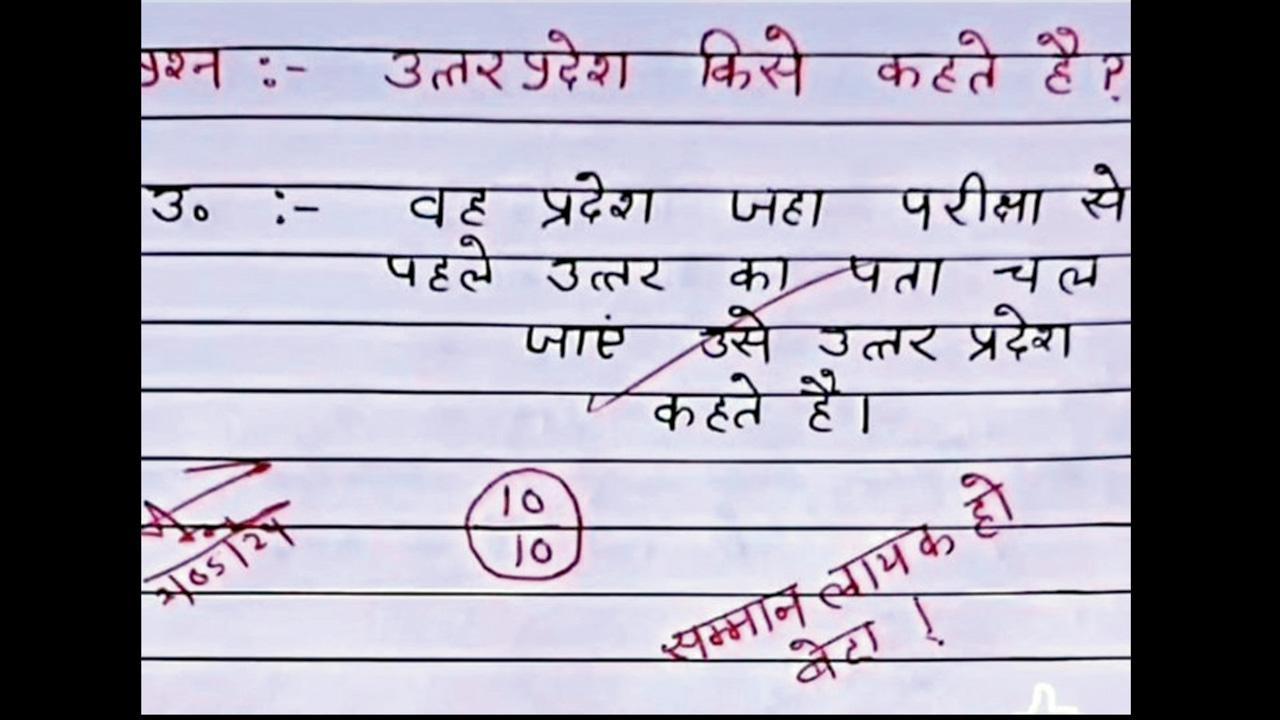 प्रश्न :- उत्तर प्रदेश किसे कहते है?
उ० :- वह प्रदेश जहा परीक्षा से
पहले उत्तर का पता चल
जाएं उसे उत्तर प्रदेश
कहते है।
10
10
सम्मान लायक हो
बेटा !